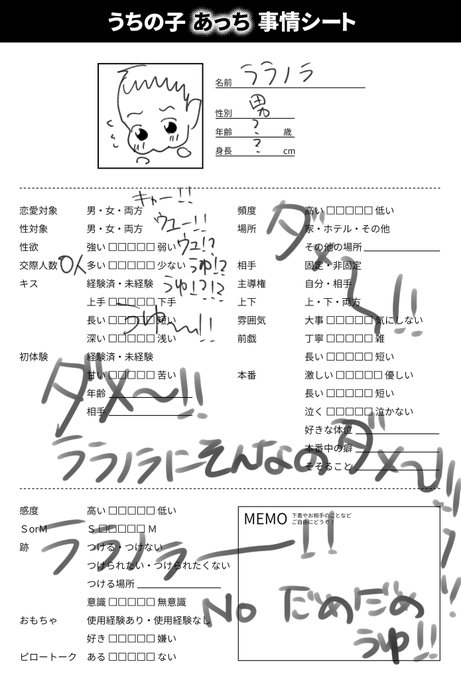 うちの子 あっち 事情シート
名前 ララノラ
性別 男
年齢 ? 歳
身長 ? cm
キャー!!
恋愛対象 男・女・両方
ウュー!!
性対象 男・女・両方
性欲 強い □□□□□ 弱い
ウュ!?
交際人数 0人 多い □□□□□ 少ない
うゆ!?
キス 経験済・未経験
うゆ!?!?
上手 □□□□□ 下手
長い □□□□□ 短い
うゆ〜!!
深い □□□□□ 浅い
初体験 経験済・未経験
甘い □□□□□ 苦い
年齢
相手
ダメ〜!!
頻度 高い □□□□□ 低い
場所 家・ホテル・その他
その他の場所
相手 固定・非固定
主導権 自分・相手
上下 上・下・両方
雰囲気 大事 □□□□□ 気にしない
前戯 丁寧 □□□□□ 雑
長い □□□□□ 短い
本番 激しい □□□□□ 優しい
長い □□□□□ 短い
泣く □□□□□ 泣かない
好きな体位
本番中の癖
そそること
ダメ〜!!
ララノラにそんなのダメ〜!!
感度 高い □□□□□ 低い
SorM S □□□□□ M
跡 つける・つけない
つけられたい・つけられたくない
つける場所
意識 □□□□□ 無意識
おもちゃ 使用経験あり・使用経験なし
好き □□□□□ 嫌い
ピロートーク ある □□□□□ ない
ララノラー!!
MEMO 下着やお相手のことなど
ご自由にどうぞ!
No だめだの
うゆ!!